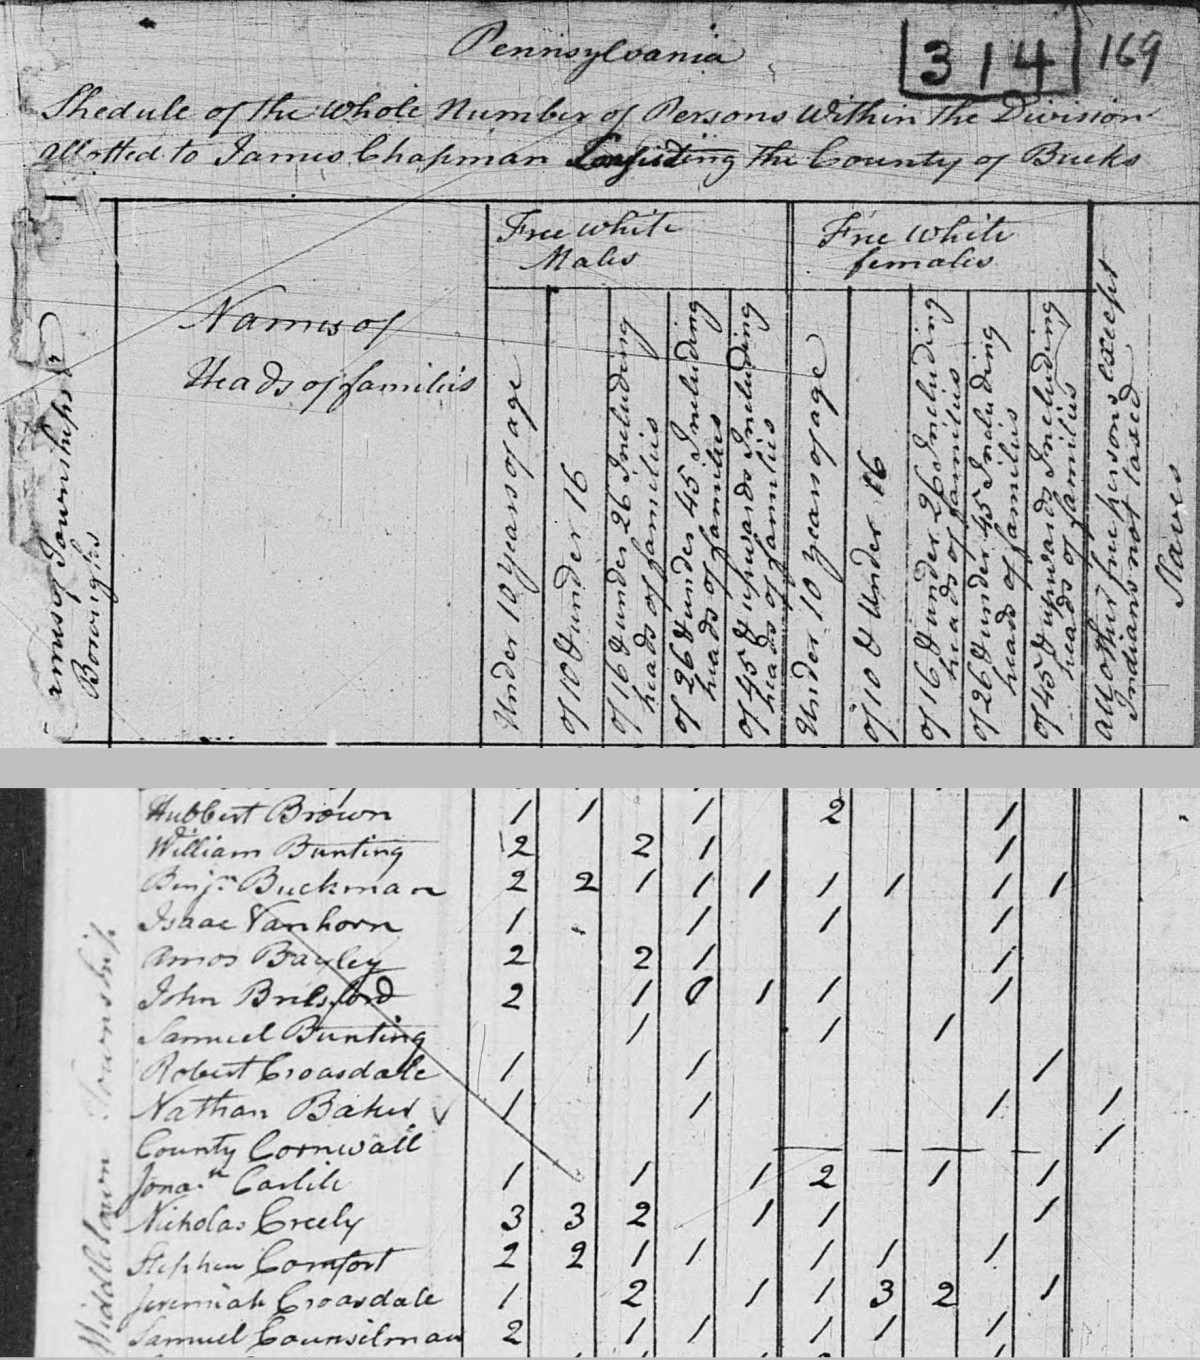 Pennsylvania
314 169
Shedule of the Whole Number of Persons Within the Division
allotted to James Chapman the County of Bucks
Names of Townships &
Boroughs
Names of
Heads of families
Free White
Males
Under 10 years of age
of 10 & under 16
of 16 & under 26 Including
heads of families
of 26 & under 45 Including
heads of families
of 45 & upwards Including
heads of families
Free White
females
Under 10 years of age
of 10 & Under 16
of 16 & under 26 Including
heads of families
of 26 & under 45 Including
heads of families
of 45 & upwards Including
heads of families
All other free persons except
Indians not taxed
Slaves
Middletown Township
Hubbert Brown 1 1 1 2 1
William Bunting 2 2 1 1
Benjn Buckman 2 2 1 1 1 1 1 1 1
Isaac Vanhorn 1 1 1 1
Amos Bayley 2 2 1 1
John Brelsford 2 1 0 1 1 1
Samuel Bunting 1 1 1
Robert Croasdale 1 1 1
Nathan Baker 1 1 1 1
County Cornwall 1
Jonan Carlile 1 1 1 2 1 1
Nicholas Creely 3 3 2 1 1 1
Stephen Comfort 2 2 1 1 1 1 1
Jeremiah Croasdale 1 2 1 1 3 2 1
Samuel Counsilman 2 1 1 1 1 1